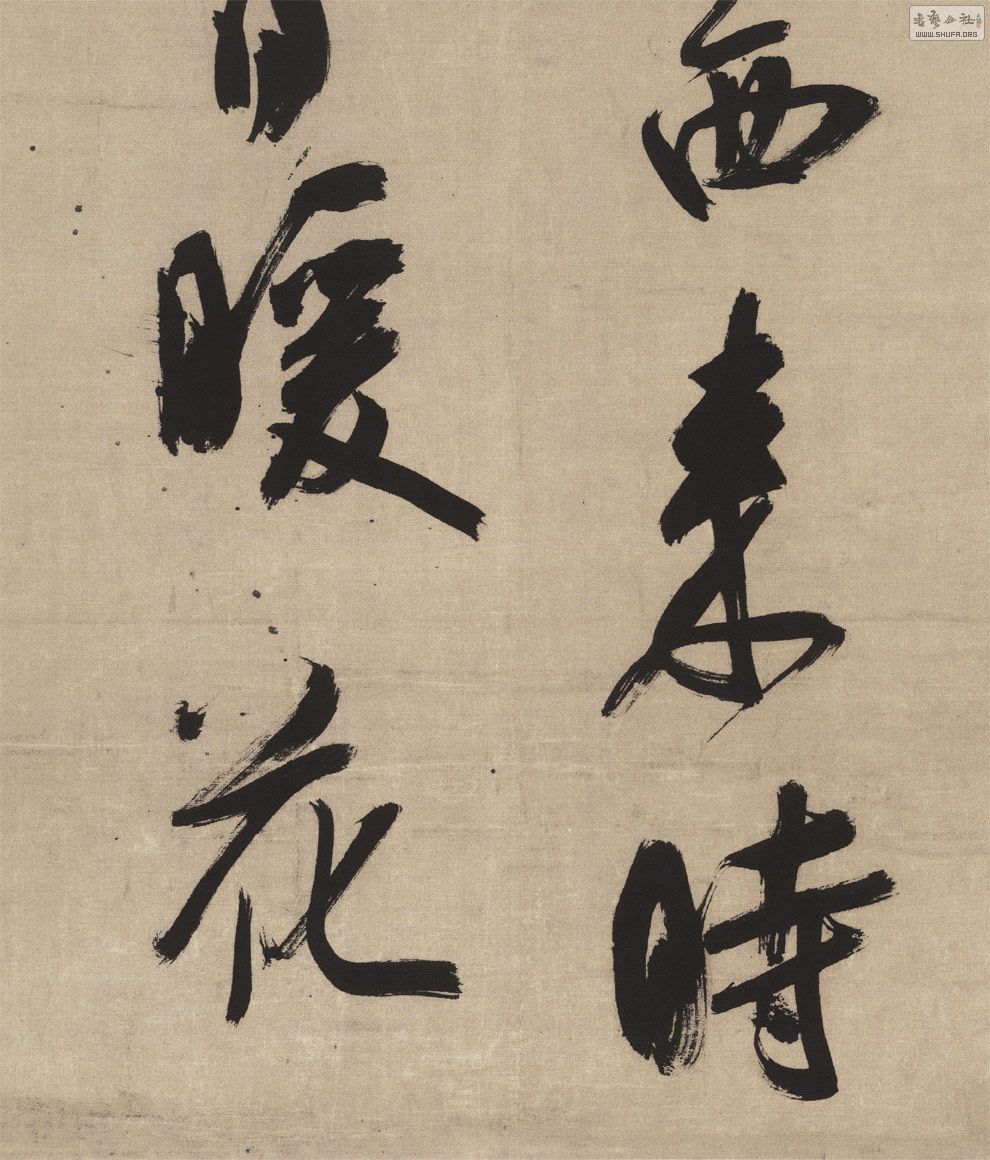 西來時
暖花
書藝公社
WWW.SHUFA.ORG